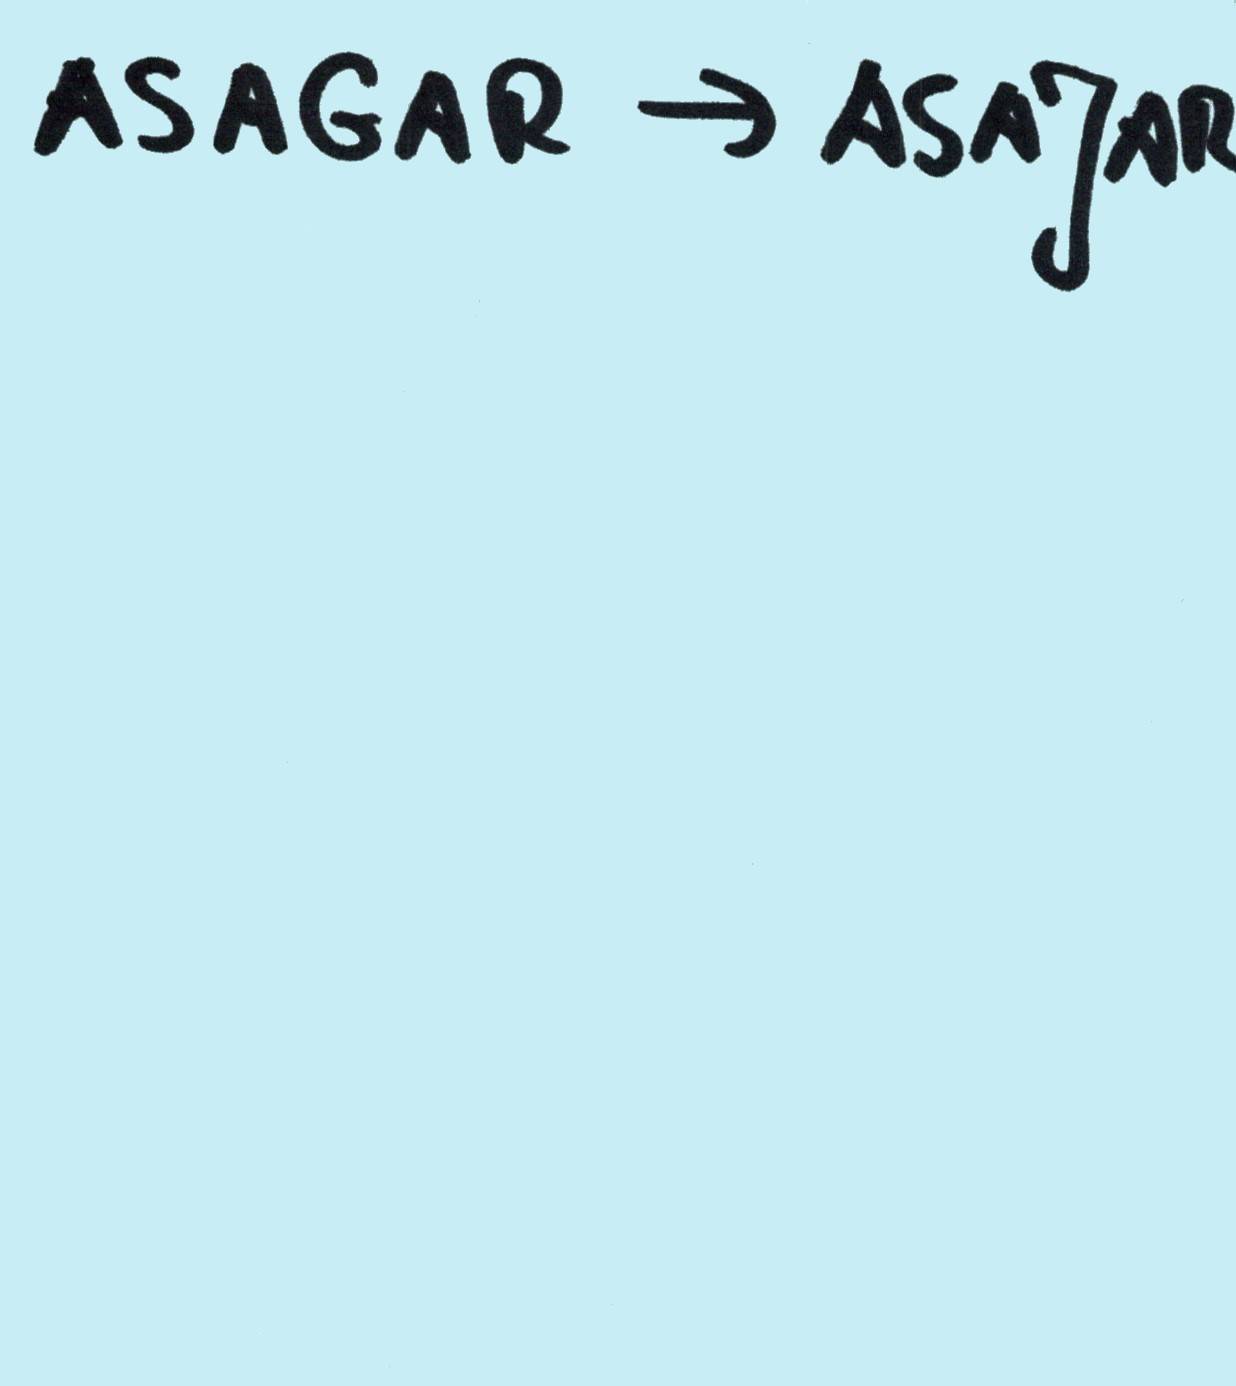 ASAGAR → ASAJAR